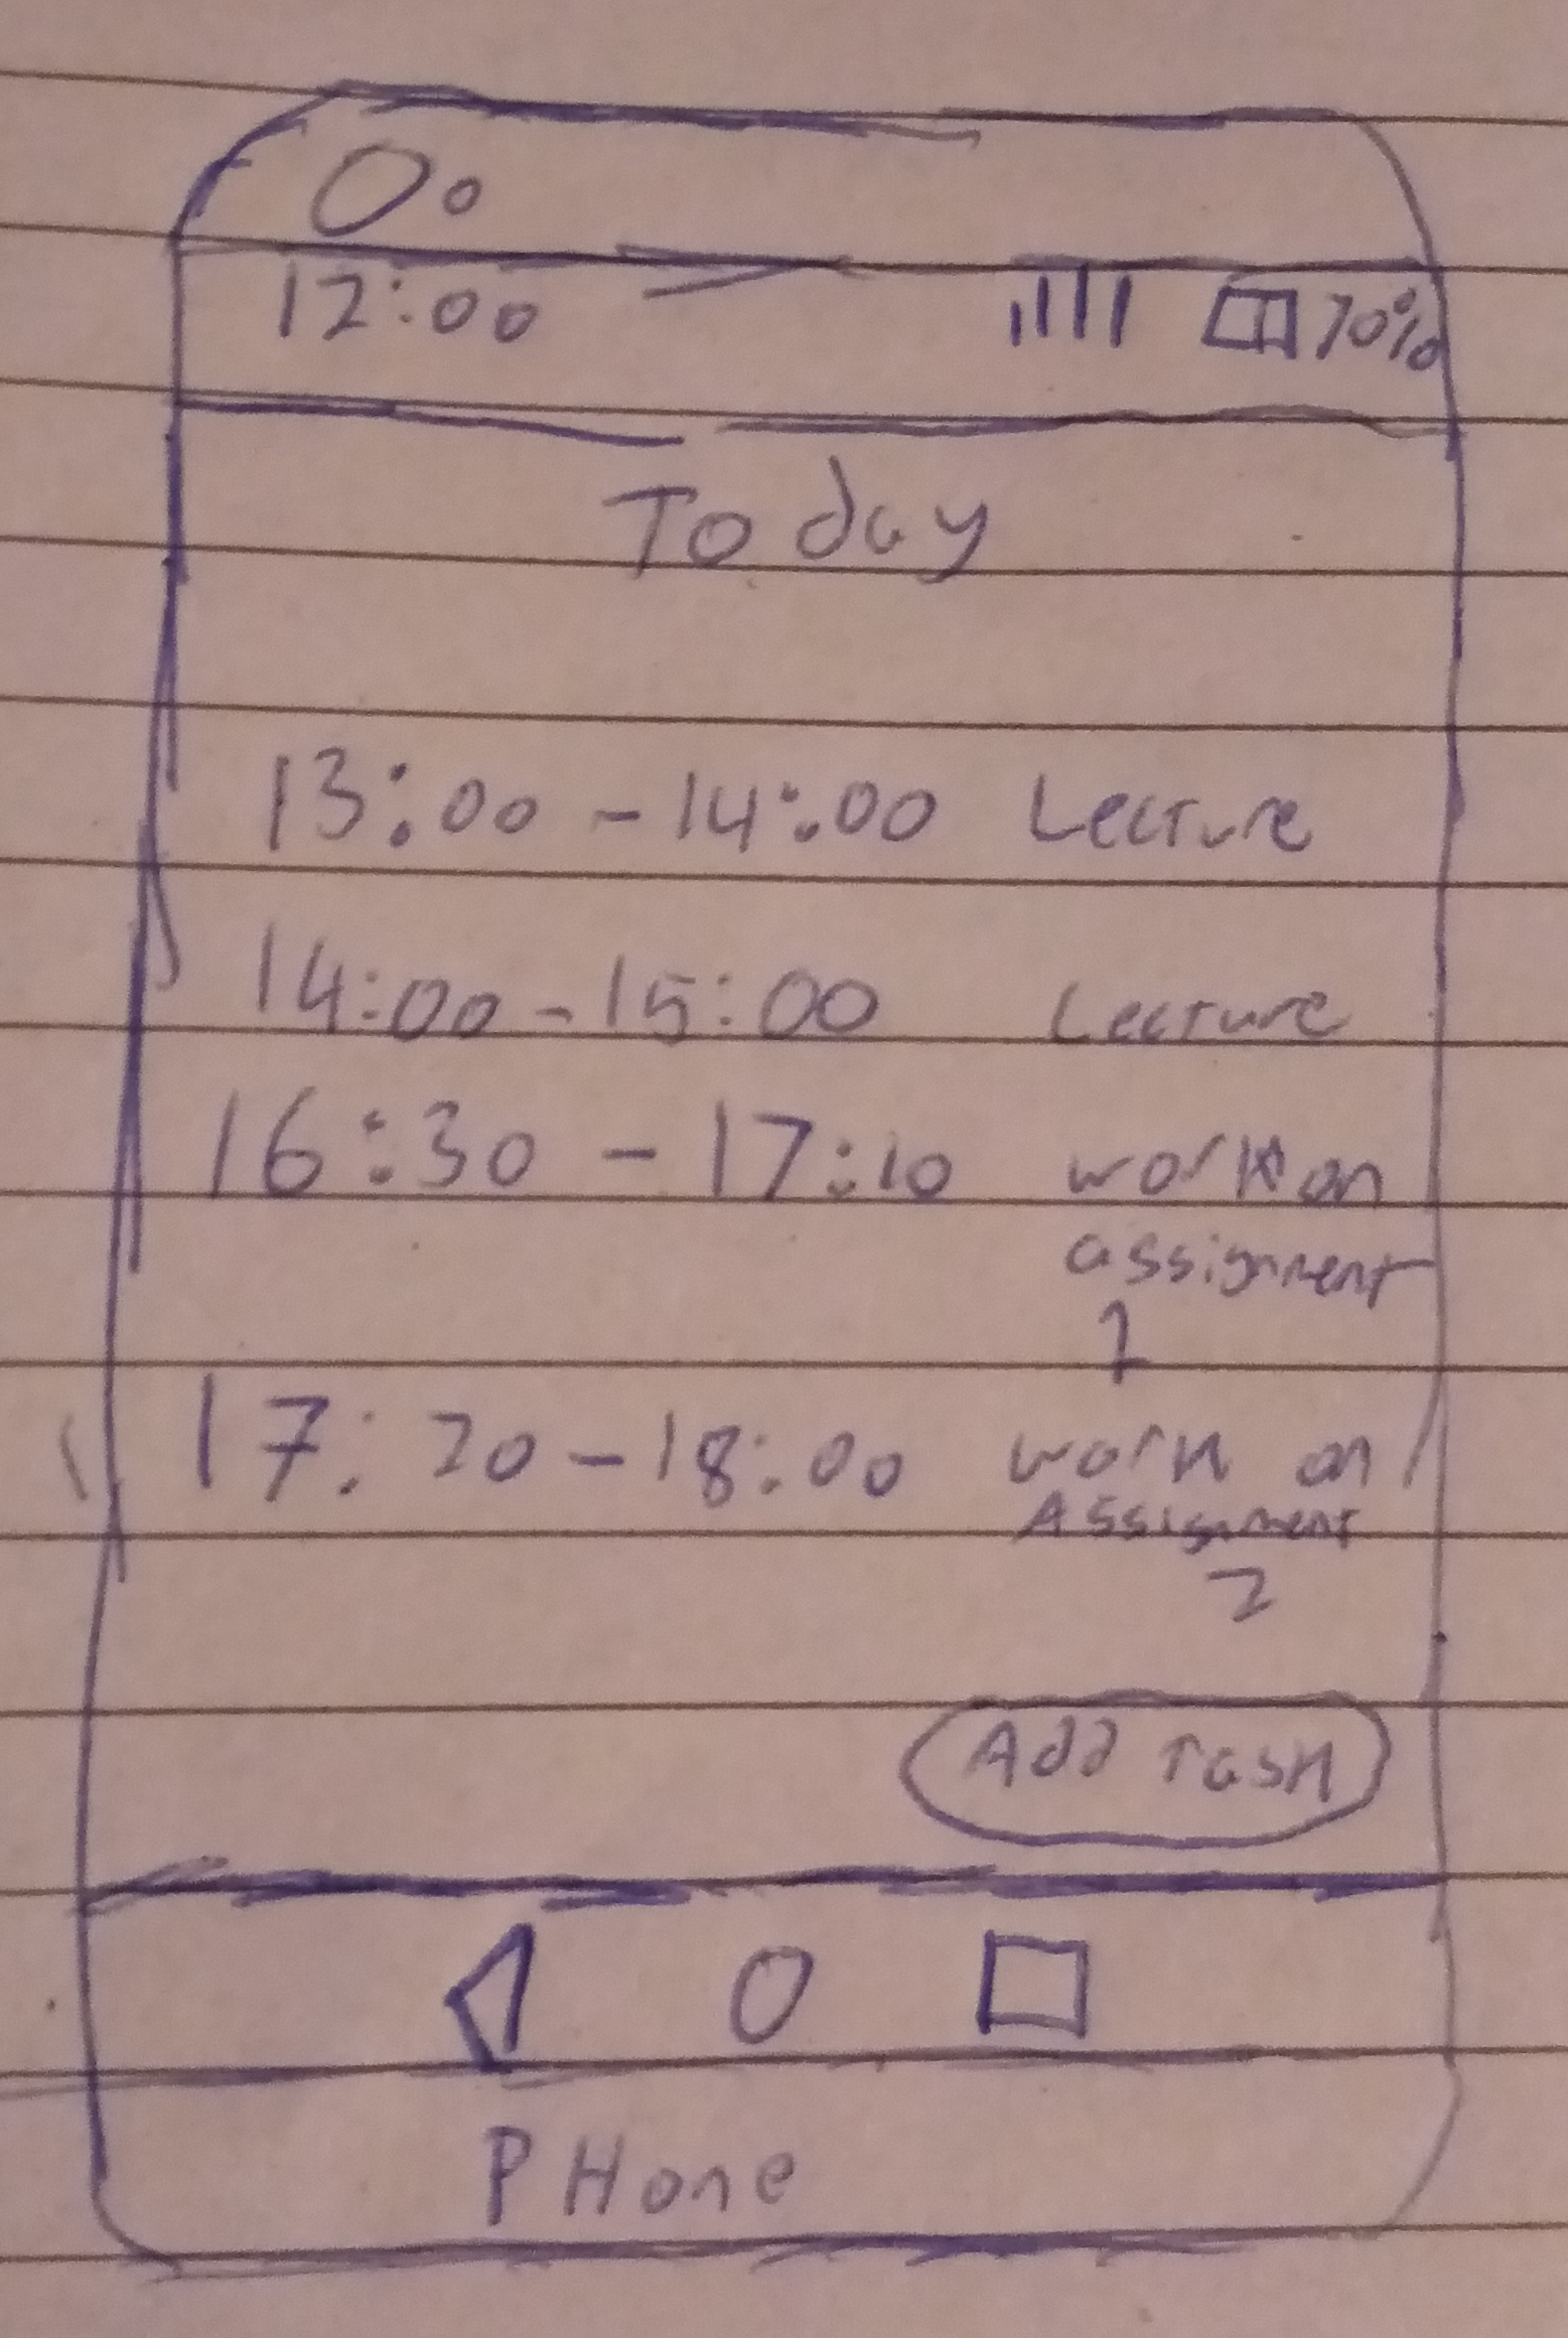 12:00 70%
Today
13:00 - 14:00 Lecture
14:00 - 15:00 Lecture
16:30 - 17:10 work on
assignment
1
17:20 - 18:00 work on
Assignment
2
Add Task
PHone